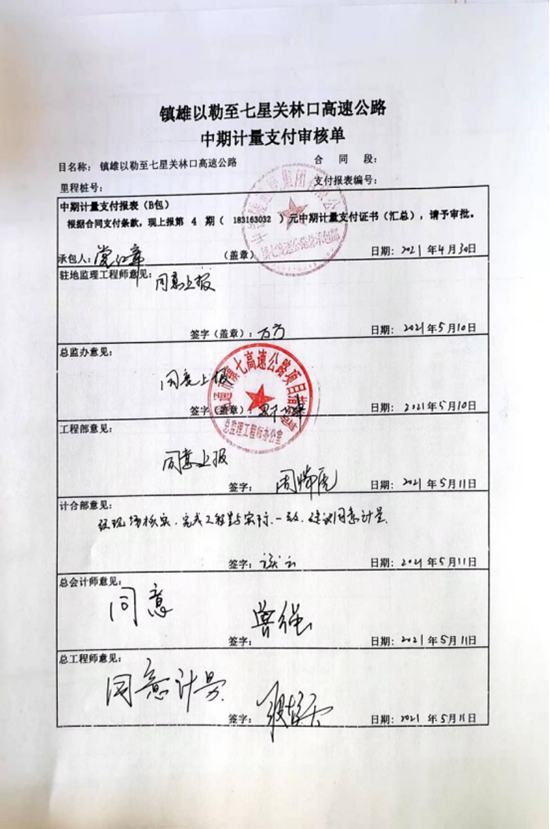 镇雄以勒至七星关林口高速公路
中期计量支付审核单
目名称: 镇雄以勒至七星关林口高速公路 合 同 段:
里程桩号: 支付报表编号:
中期计量支付报表(B包)
根据合同支付条款,现上报第 4 期( 183163032 )元中期计量支付证书(汇总),请予审批。
承包人: (盖章) 日期: 2021 年 4 月 30 日
驻地监理工程师意见: 同意上报
签字(盖章): 万方 日期: 2021 年 5 月 10 日
总监办意见:
同意上报
签字(盖章): 日期: 2021 年 5 月 10 日
总监理工程师办公室
工程部意见:
同意上报
签字: 日期: 2021 年 5 月 11 日
计合部意见:
经现场核实,完成工程量与实际一致,建议同意计量
签字: 日期: 2021 年 5 月 11 日
总会计师意见:
同意
签字: 曾强 日期: 2021 年 5 月 11 日
总工程师意见:
同意计量
签字: 日期: 2021 年 5 月 11 日